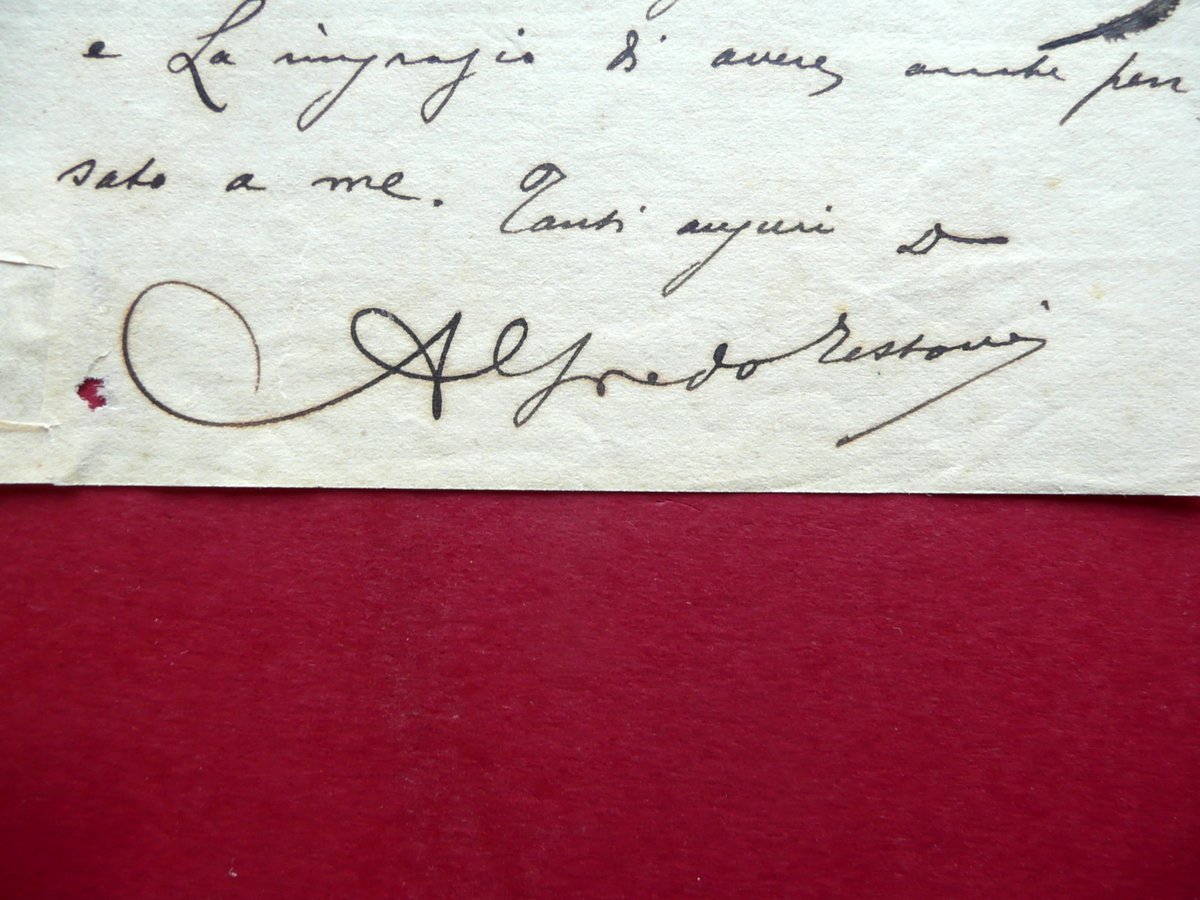 e La ringrazio di avere anche pen
sato a me. Tanti auguri D
Alfredo Testoni